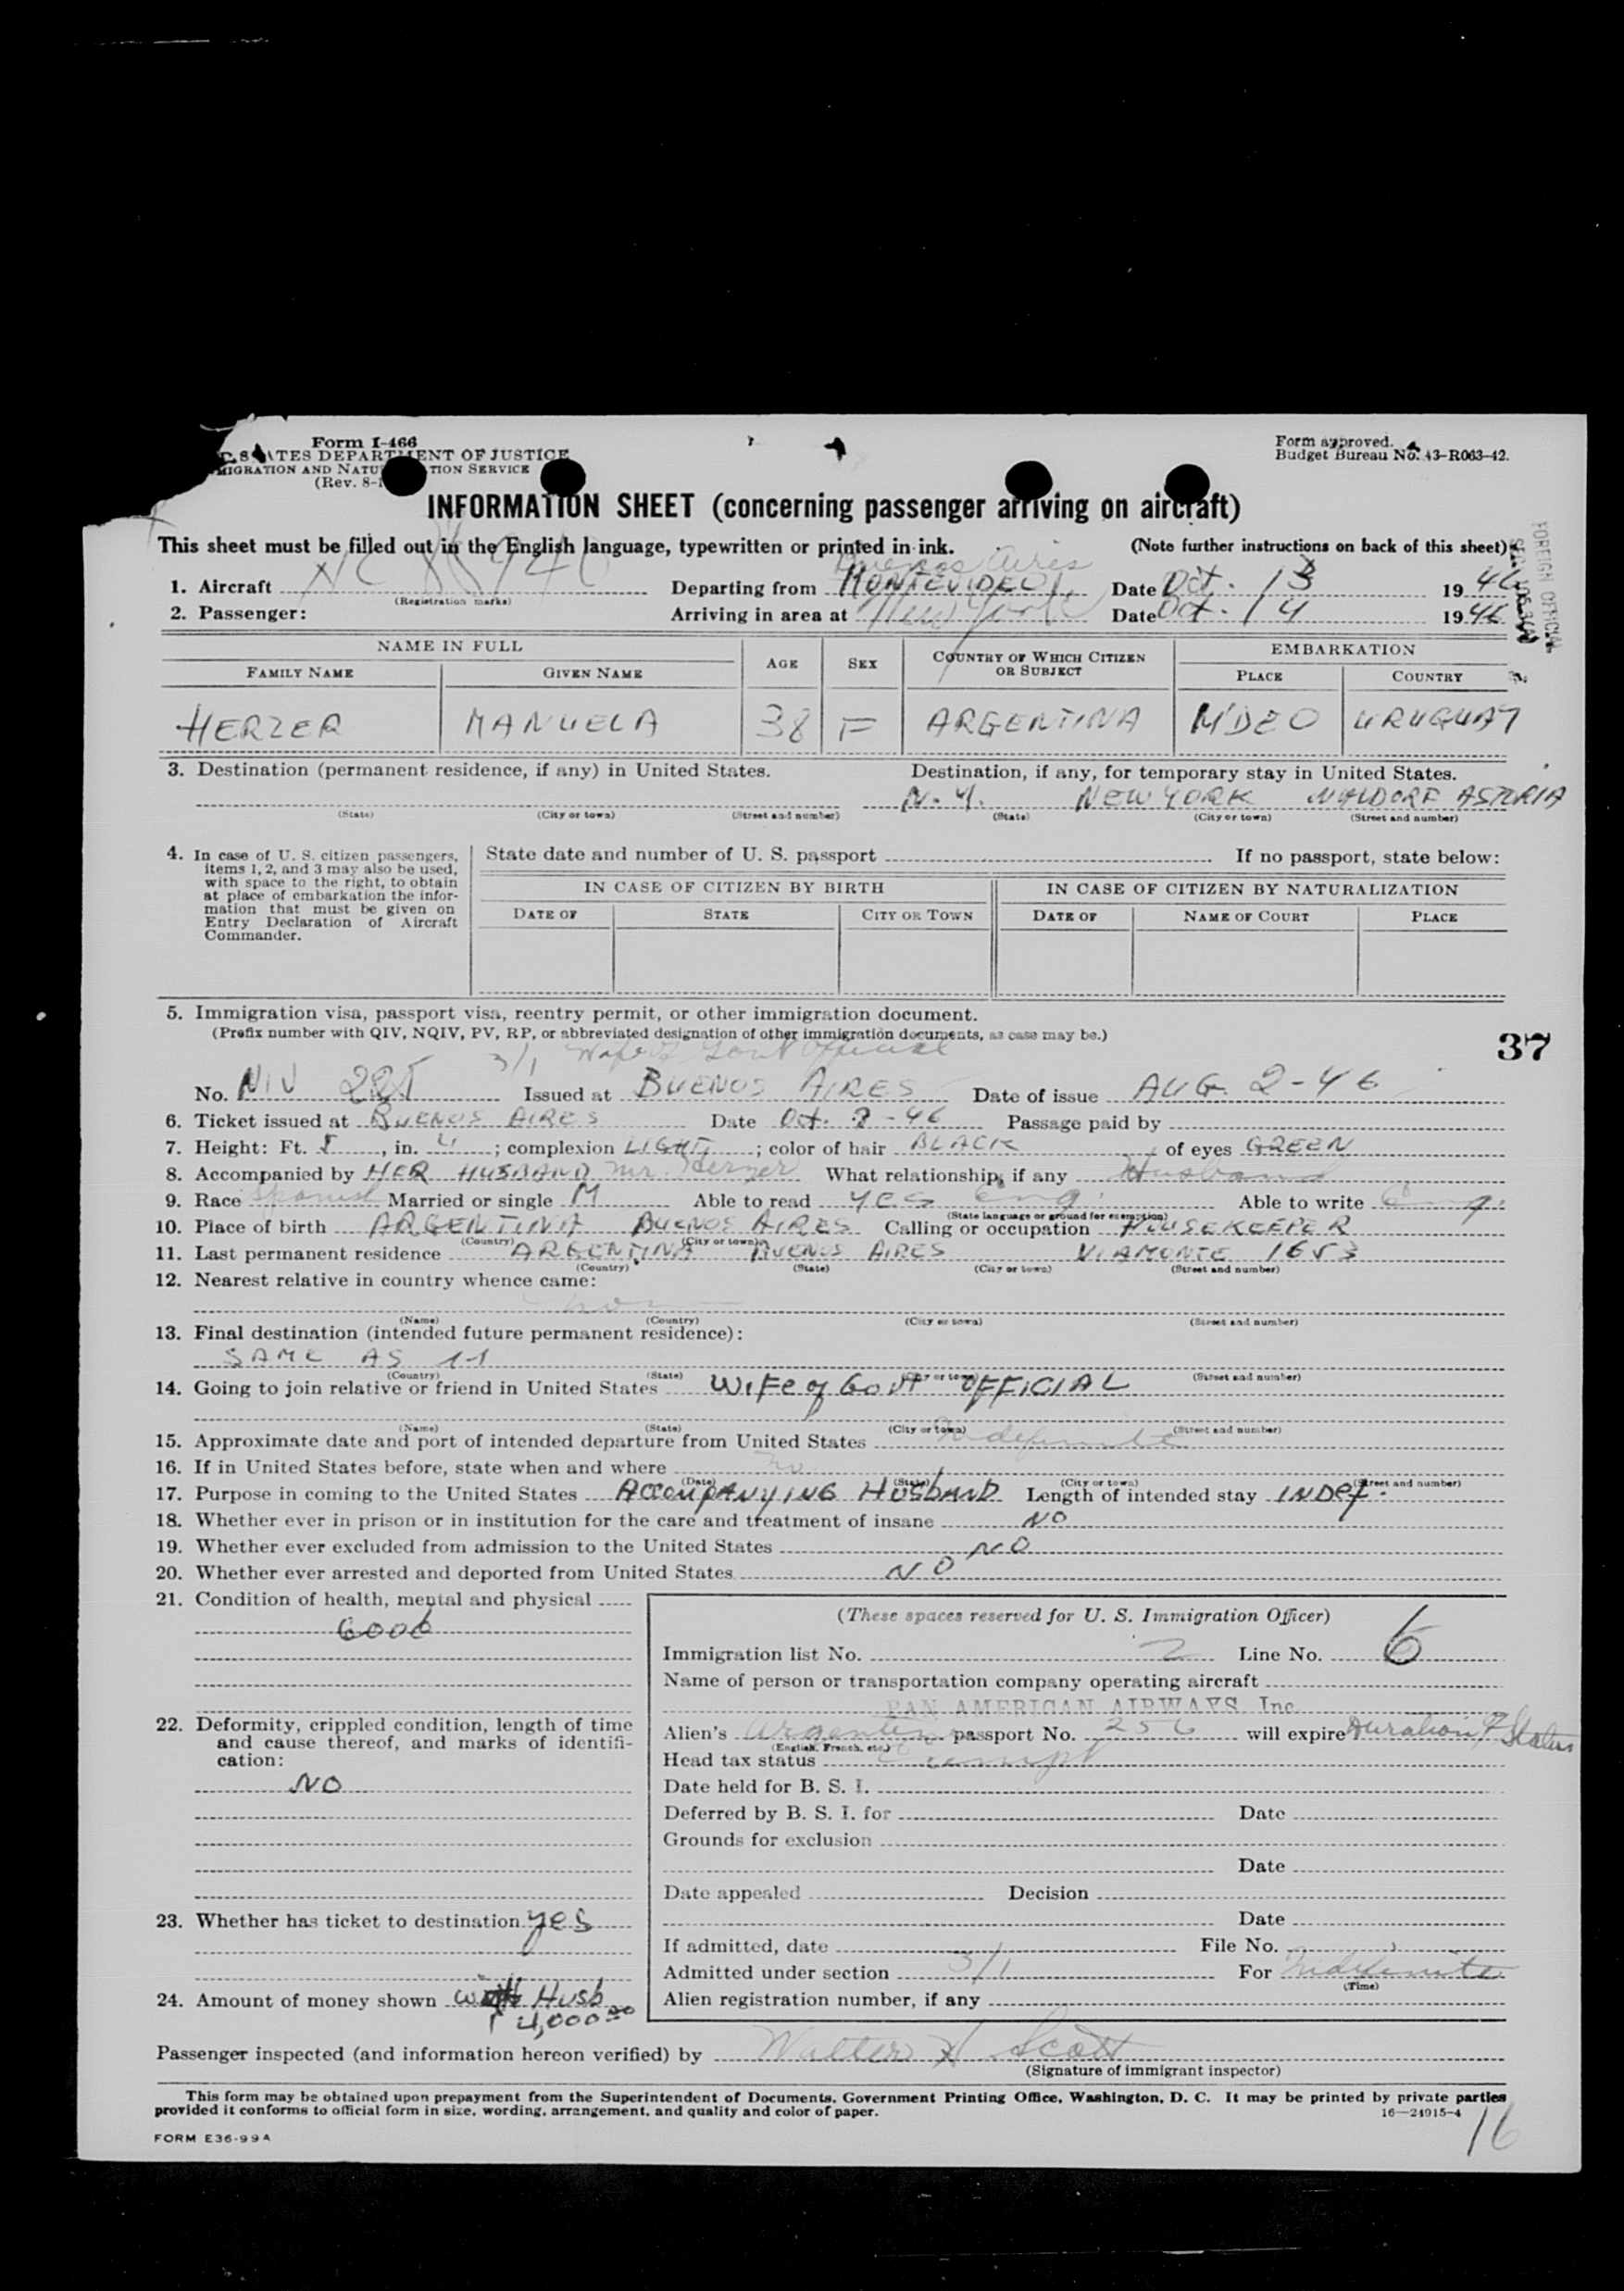 Form I-466
STATES DEPARTMENT OF JUSTICE
MIGRATION AND NATU TION SERVICE
(Rev. 8-1
Form approved.
Budget Bureau No. 43-R063-42.
INFORMATION SHEET (concerning passenger arriving on aircraft)
This sheet must be filled out in the English language, typewritten or printed in ink.
(Note further instructions on back of this sheet)
FOREIGN OFFICIAL
Buenos Aires
1. Aircraft NC 88946 Departing from MONTEVIDEO Date Oct. 13 1946
(Registration marks)
2. Passenger: Arriving in area at New York Date Oct. 14 1946
NAME IN FULL AGE SEX COUNTRY OF WHICH CITIZEN OR SUBJECT EMBARKATION
FAMILY NAME GIVEN NAME PLACE COUNTRY
HERZER MANUELA 38 F ARGENTINA M'DEO URUGUAY
3. Destination (permanent residence, if any) in United States. Destination, if any, for temporary stay in United States.
N.Y. NEW YORK WALDORF ASTORIA
(State) (City or town) (Street and number) (State) (City or town) (Street and number)
4. In case of U. S. citizen passengers, items 1, 2, and 3 may also be used, with space to the right, to obtain at place of embarkation the information that must be given on Entry Declaration of Aircraft Commander.
State date and number of U. S. passport If no passport, state below:
IN CASE OF CITIZEN BY BIRTH IN CASE OF CITIZEN BY NATURALIZATION
DATE OF STATE CITY OR TOWN DATE OF NAME OF COURT PLACE
5. Immigration visa, passport visa, reentry permit, or other immigration document.
(Prefix number with QIV, NQIV, PV, RP, or abbreviated designation of other immigration documents, as case may be.)
37
3/1 Wife of Govt Official
No. NIV Issued at BUENOS AIRES Date of issue AUG. 2-46
6. Ticket issued at BUENOS AIRES Date Oct. -46 Passage paid by
7. Height: Ft. 5, in. 4; complexion LIGHT; color of hair BLACK of eyes GREEN
8. Accompanied by HER HUSBAND Mr. Herzer What relationship, if any Husband
9. Race Spanish Married or single M Able to read YES Eng. Able to write Eng.
(State language or ground for exemption)
10. Place of birth ARGENTINA BUENOS AIRES Calling or occupation HOUSEKEEPER
(Country) (City or town)
11. Last permanent residence ARGENTINA BUENOS AIRES VIAMONTE 1653
(Country) (State) (City or town) (Street and number)
12. Nearest relative in country whence came:
(Name) (Country) (City or town) (Street and number)
13. Final destination (intended future permanent residence):
SAME AS 11
(Country) (State) (City or town) (Street and number)
14. Going to join relative or friend in United States Wife of Govt OFFICIAL
(Name) (State) (City or town) (Street and number)
15. Approximate date and port of intended departure from United States Indefinite
16. If in United States before, state when and where No
(Date) (State) (City or town) (Street and number)
17. Purpose in coming to the United States AccomPANYING HUSbAND Length of intended stay INDEf.
18. Whether ever in prison or in institution for the care and treatment of insane NO
19. Whether ever excluded from admission to the United States NO
20. Whether ever arrested and deported from United States NO
21. Condition of health, mental and physical
Good
22. Deformity, crippled condition, length of time and cause thereof, and marks of identification:
NO
23. Whether has ticket to destination yes
24. Amount of money shown with Husb
4,000.00
(These spaces reserved for U. S. Immigration Officer)
Immigration list No. 2 Line No. 6
Name of person or transportation company operating aircraft
PAN AMERICAN AIRWAYS, Inc.
Alien's Argentine passport No. 256 will expire Duration of Status
(English, French, etc.)
Head tax status Exempt
Date held for B. S. I.
Deferred by B. S. I. for Date
Grounds for exclusion
Date
Date appealed Decision
Date
If admitted, date File No.
Admitted under section 3/1 For Indefinite
(Time)
Alien registration number, if any
Passenger inspected (and information hereon verified) by Walter H Scott
(Signature of immigrant inspector)
This form may be obtained upon prepayment from the Superintendent of Documents, Government Printing Office, Washington, D. C. It may be printed by private parties
provided it conforms to official form in size, wording, arrangement, and quality and color of paper.
16—24915-4
FORM E36-99A
16